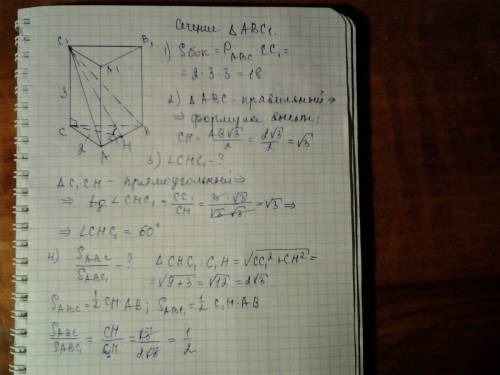 Сечение △ABC₁.
C₁
B₁
A₁
3
C
B
H
2
A
1) Sбок = P_ABC · CC₁ =
= 2·3·3 = 18
2) △ABC - правильный ⇒
⇒ формула высоты:
CH = AB√3/2 = 2√3/2 = √3
3) ∠CHC₁ - ?
△C₁CH - прямоугольный ⇒
⇒ tg∠CHC₁ = CC₁/CH = 3·√3/√3·√3 = √3 ⇒
⇒ ∠CHC₁ = 60°
4) S_ABC/S_ABC₁ - ? △CHC₁: C₁H = √CC₁²+CH² =
= √9+3 = √12 = 2√3
S_ABC = ½ CH·AB; S_ABC₁ = ½ C₁H·AB
S_ABC/S_ABC₁ = CH/C₁H = √3/2√3 = 1/2